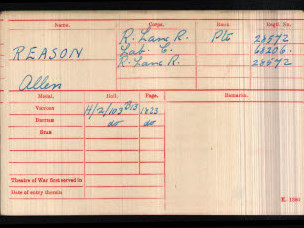 Name. Corps. Rank. Regtl. No.
REASON R. Lanc R. Pte 28572
Lab. C. 68206.
R. Lanc R. 28572
Allen
Medal. Roll. Page. Remarks.
Victory H/2/103 B13 1823
British do do
Star
Theatre of War first served in
Date of entry therein
K. 1380